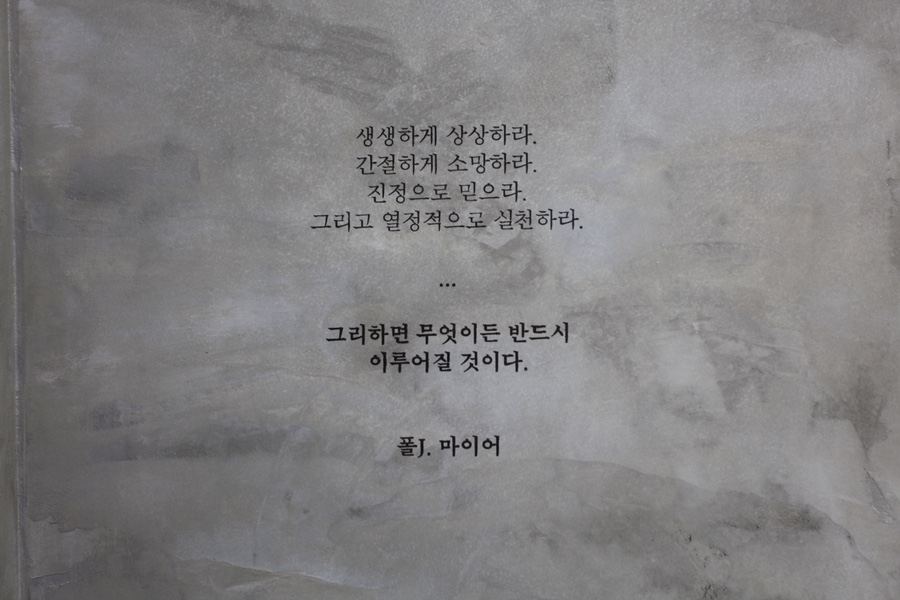 생생하게 상상하라.
간절하게 소망하라.
진정으로 믿으라.
그리고 열정적으로 실천하라.
...
그리하면 무엇이든 반드시
이루어질 것이다.
폴J. 마이어